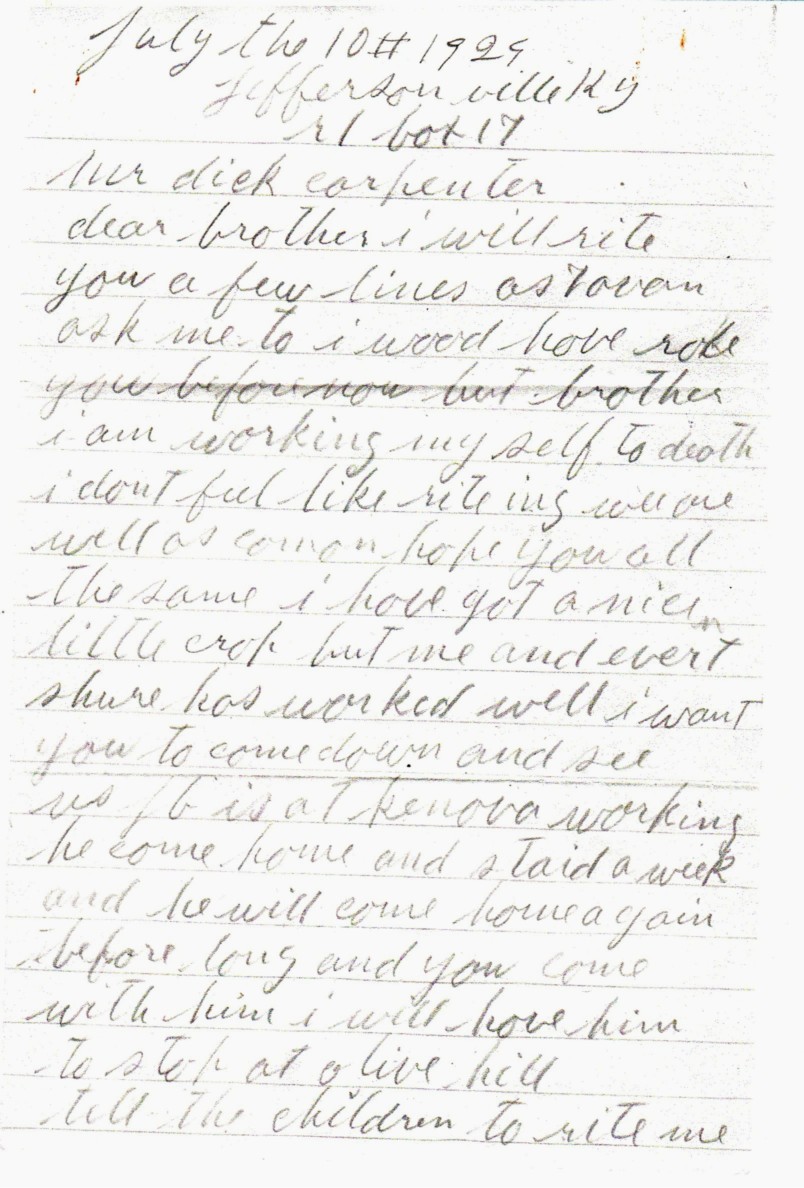 July the 10# 1929
Jeffersonville Ky
r1 box 17
mr dick carpenter
dear brother i will rite
you a few lines as
ask me to i wood have rote
you before now but brother
i am working my self to death
i dont feel like rite ing we are
well as comon hope you all
the same i have got a nice
little crop but me and evert
shure has worked well i want
you to come down and see
us is at kenova working
he come home and staid a week
and he will come home again
before long and you come
with him i will have him
to stop at olive hill
tell the children to rite me